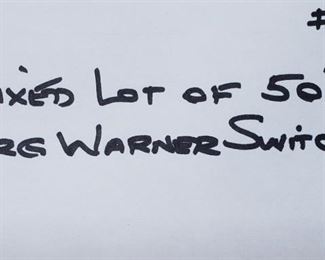 #
IXED LOT OF 50'
RG WARNER SWITC